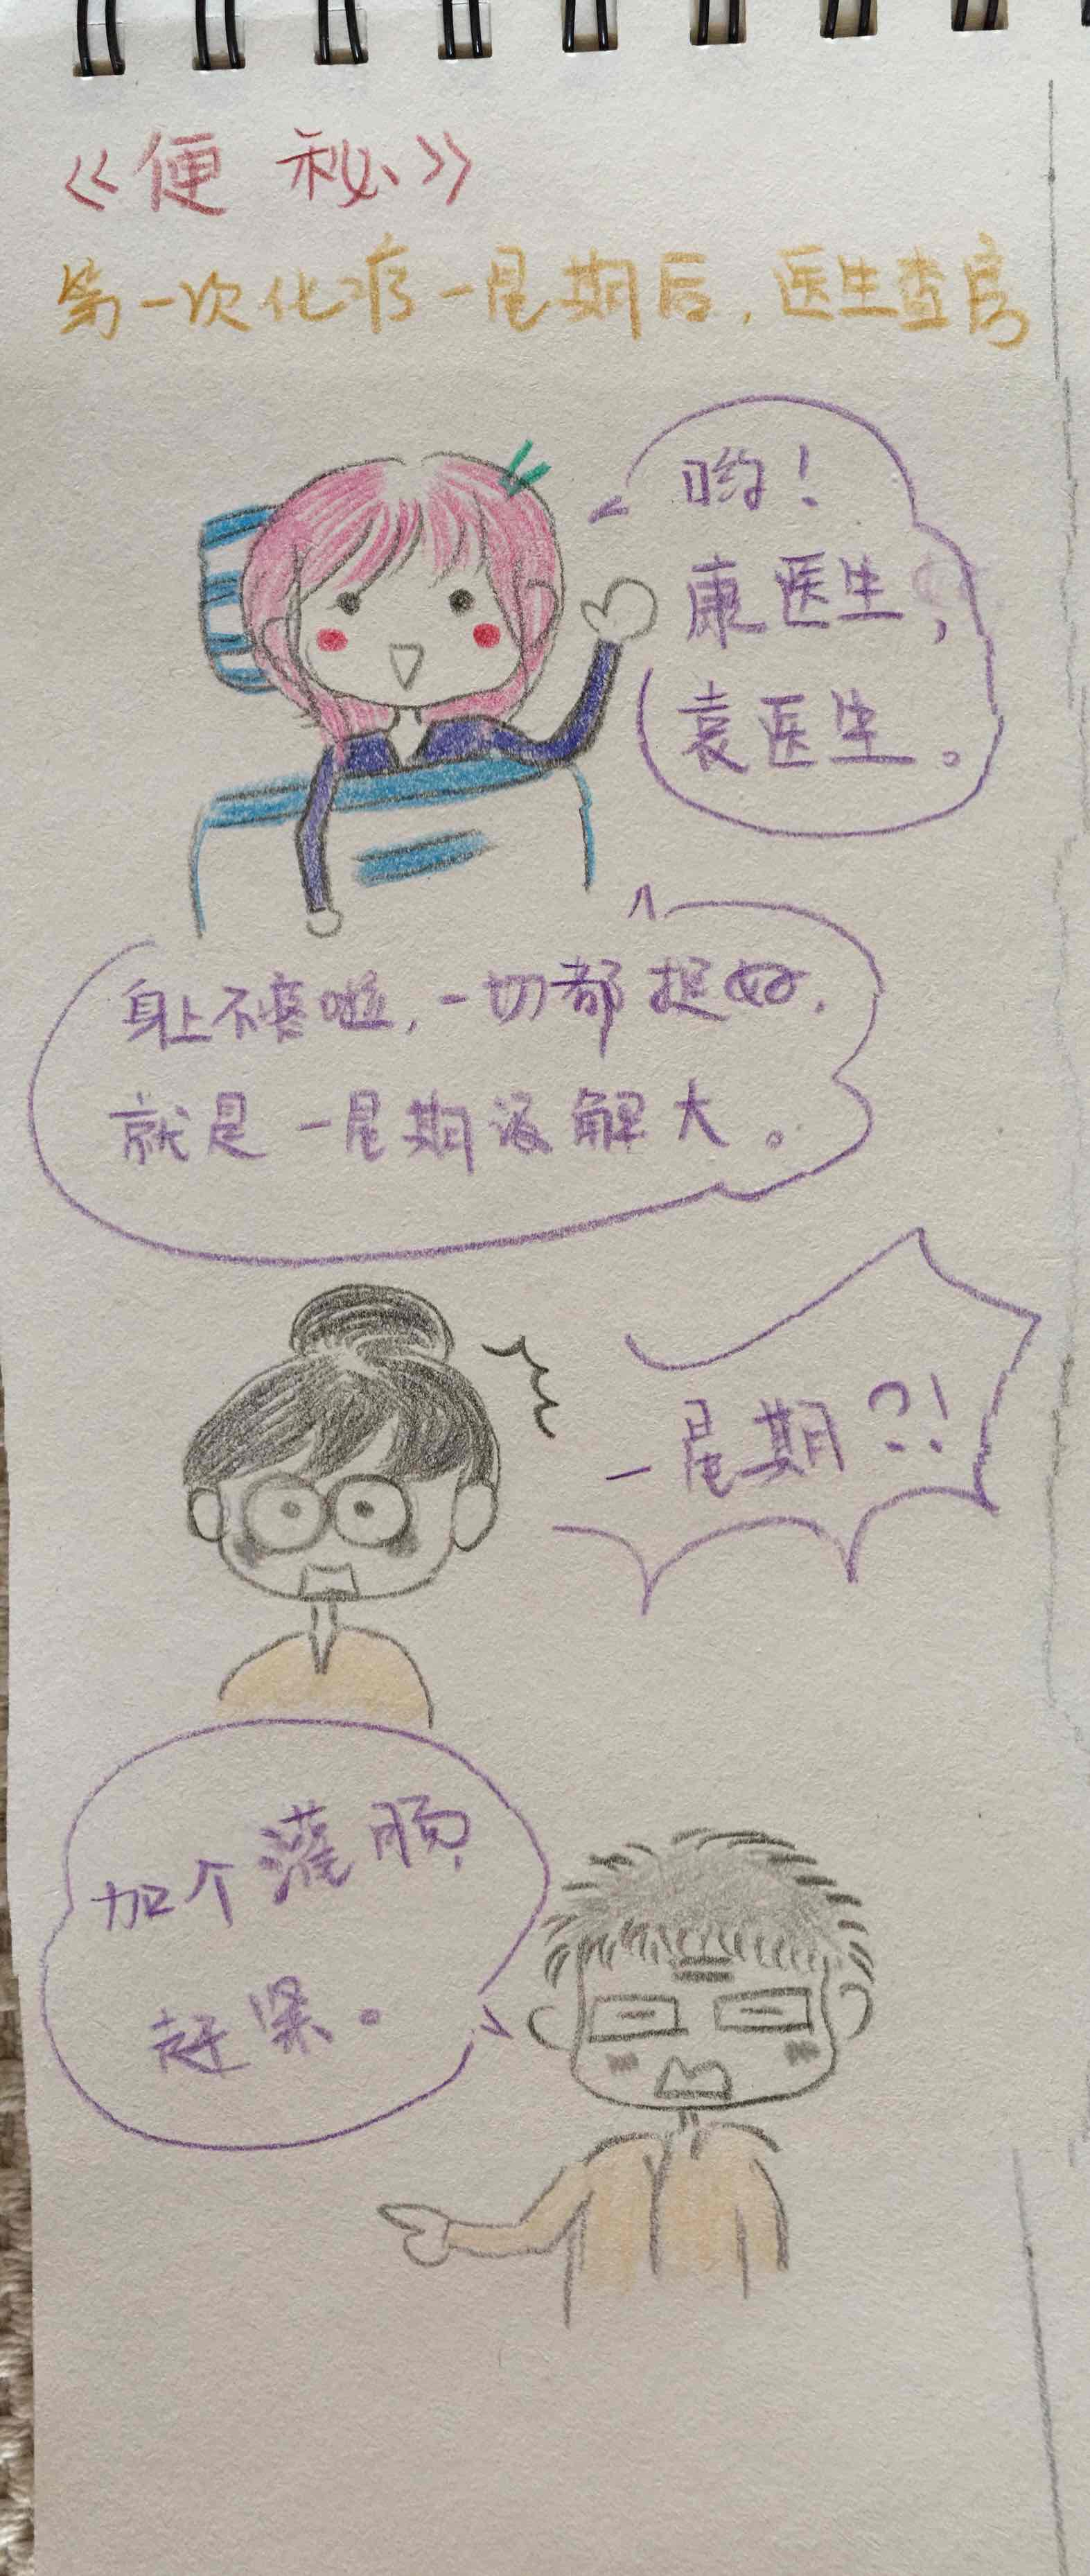 《便秘》
第一次化疗一星期后，医生查房
哟！
康医生，
袁医生。
身上不疼啦，一切都挺好，
就是一星期没解大。
一星期？！
加个灌肠，
赶紧。